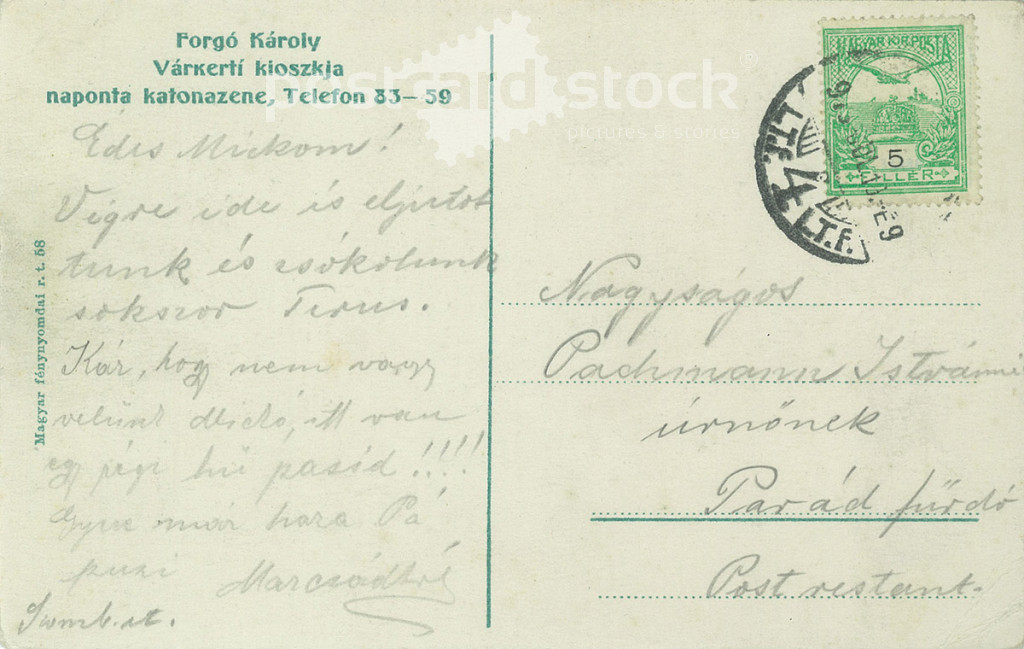 Forgó Károly
Várkerti kioszkja
naponta katonazene, Telefon 83-59
postcard stock
pictures & stories
MAGYAR KIR. POSTA
5
FILLÉR
Édes Mickom!
Végre ide is eljutot
tunk és csókolunk
sokszor Terus.
Kár, hogy nem vagy
velünk itt van
egy régi hű pasid!!!!
Gyere már haza Pá
puszi Marcsádtól
Szomb. at.
Magyar fénynyomdai r. t. 58
Nagyságos
Pachmann Istvánné
úrnőnek
Parád fürdő
Post restant.